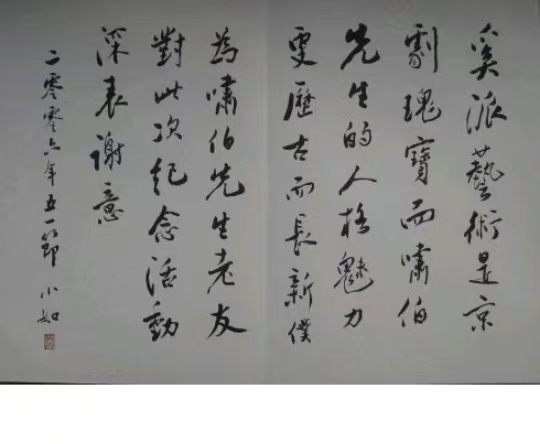 奚派藝術是京
劇瑰寶而嘯伯
先生的人格魅力
更歷古而長新僕
為嘯伯先生老友
對此次紀念活動
深表謝意
二零零六年五一節 小如